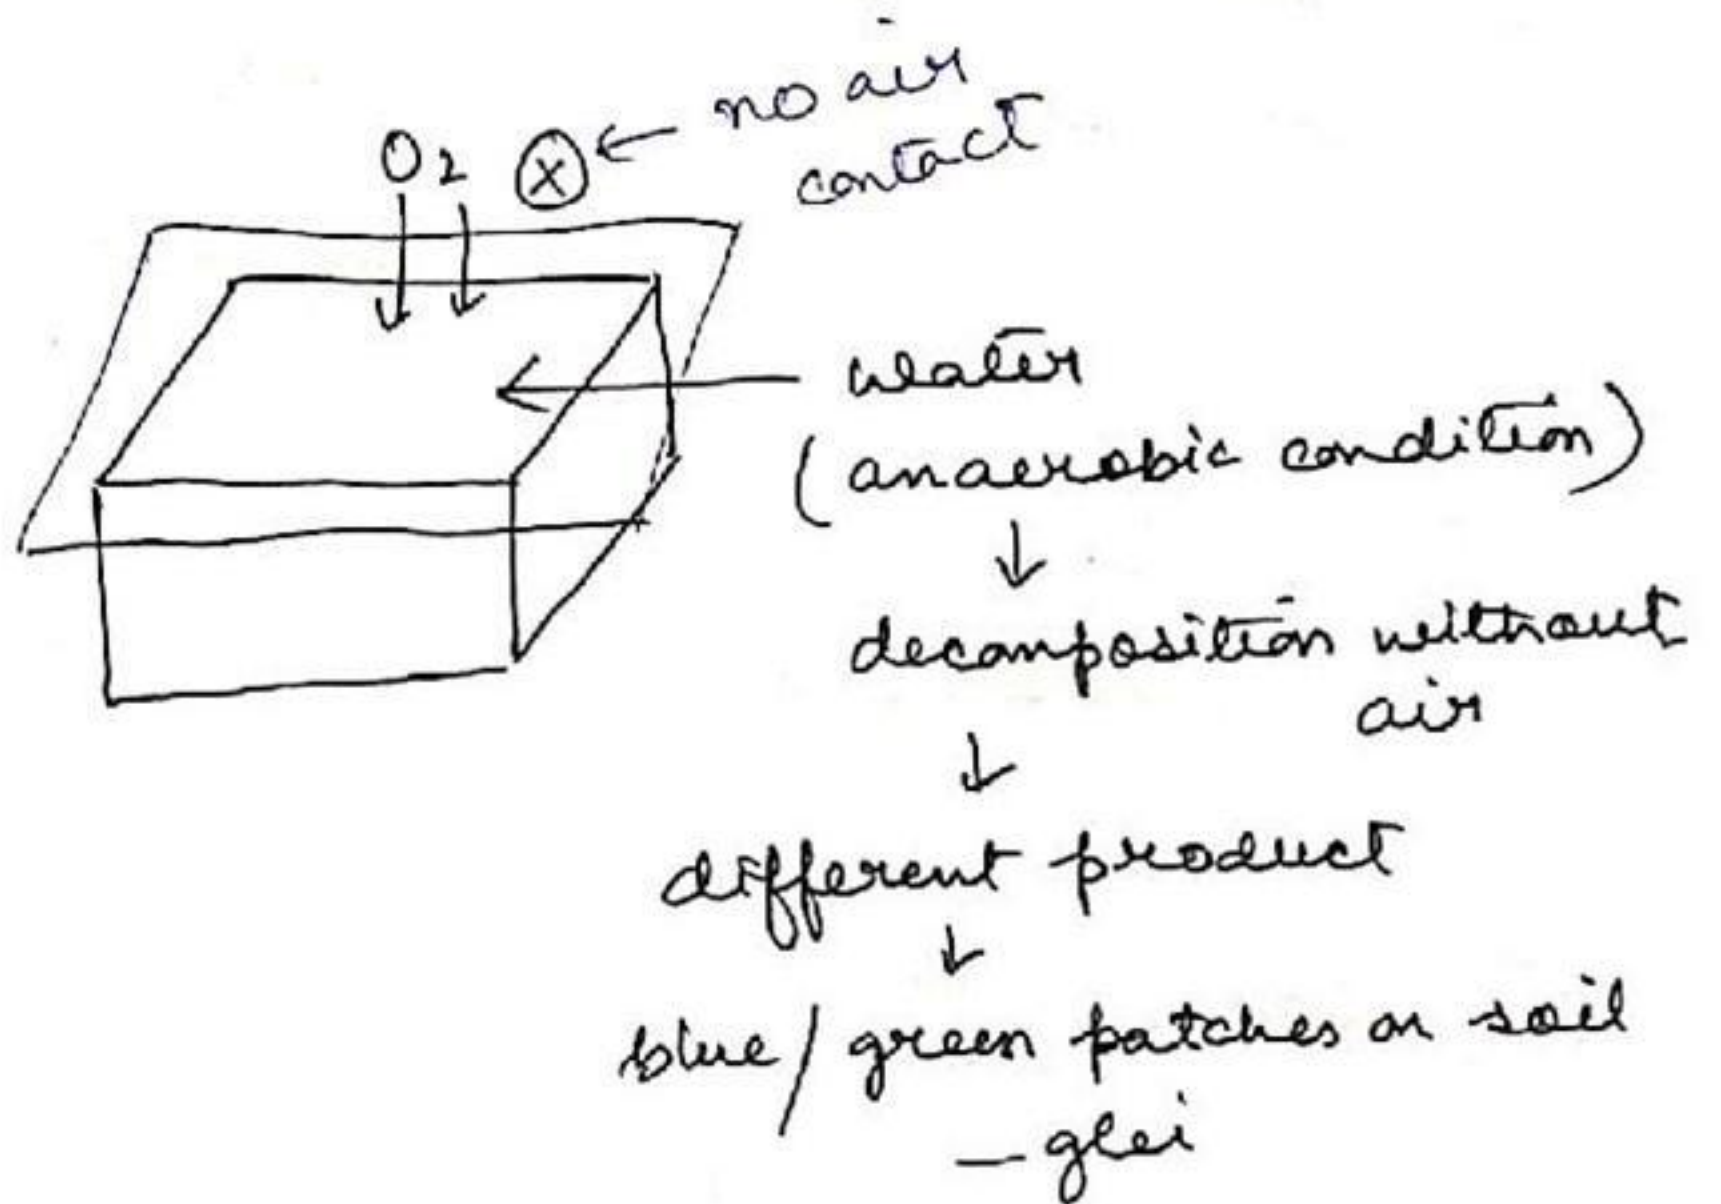 no air
contact
O2 ⓧ ←
water
(anaerobic condition)
↓
decomposition without
air
↓
different product
↓
blue / green patches on soil
— glei